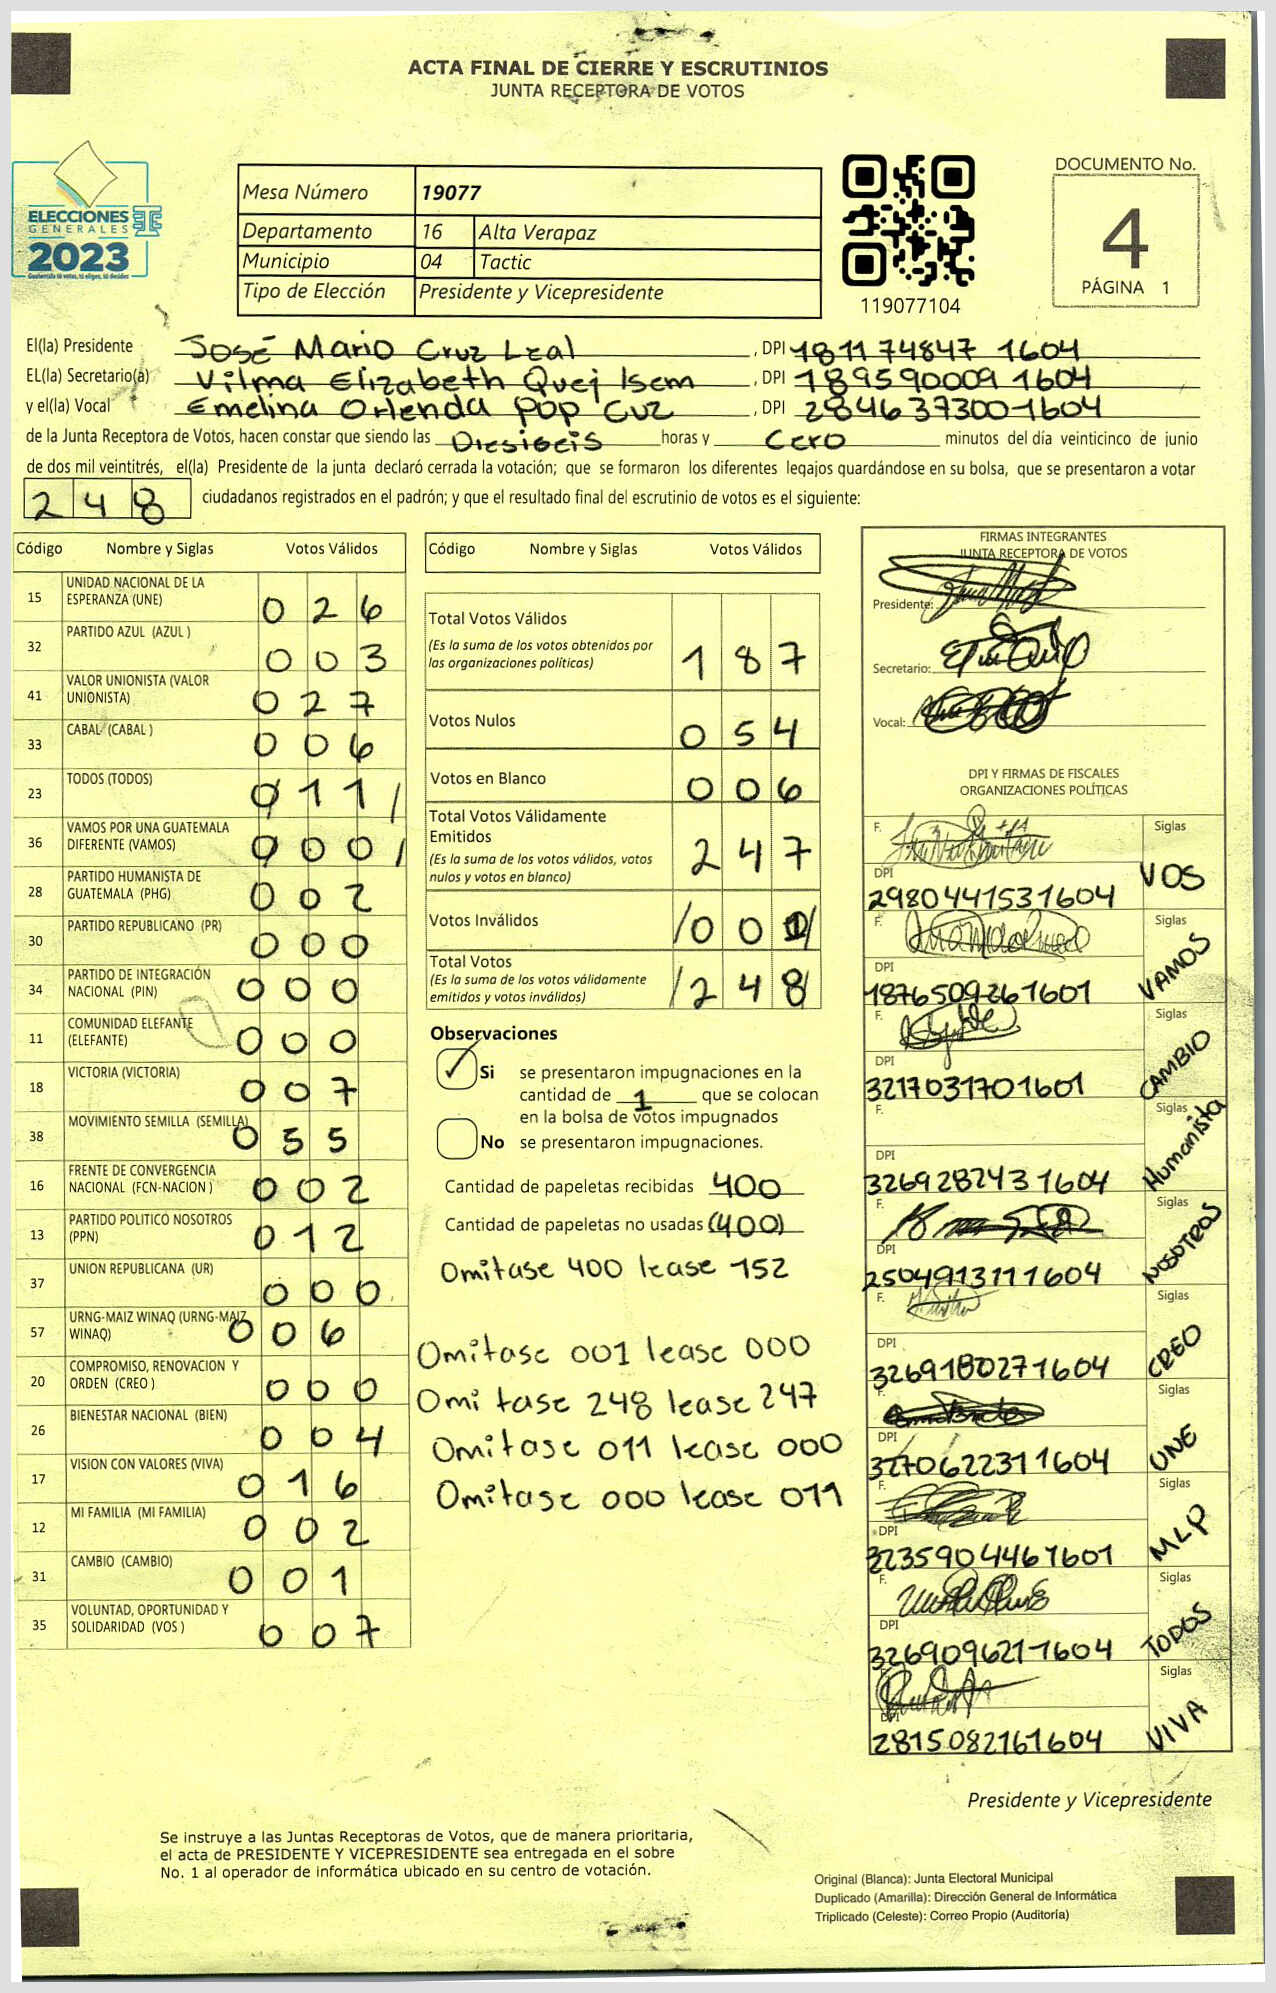 ACTA FINAL DE CIERRE Y ESCRUTINIOS
JUNTA RECEPTORA DE VOTOS
ELECCIONES
GENERALES
2023
Guatemala tú votas, tú eliges, tú decides
Mesa Número 19077
Departamento 16 Alta Verapaz
Municipio 04 Tactic
Tipo de Elección Presidente y Vicepresidente
119077104
DOCUMENTO No.
4
PÁGINA 1
El(la) Presidente José Mario Cruz Leal , DPI 181174847 1604
EL(la) Secretario(a) Vilma Elizabeth Quej Isem , DPI 189590009 1604
y el(la) Vocal Emelina Orlenda Pop Cuz , DPI 284637300 1604
de la Junta Receptora de Votos, hacen constar que siendo las Diesiseis horas y Cero minutos del día veinticinco de junio
de dos mil veintitrés, el(la) Presidente de la junta declaró cerrada la votación; que se formaron los diferentes legajos guardándose en su bolsa, que se presentaron a votar
248 ciudadanos registrados en el padrón; y que el resultado final del escrutinio de votos es el siguiente:
Código Nombre y Siglas Votos Válidos
15 UNIDAD NACIONAL DE LA ESPERANZA (UNE) 026
32 PARTIDO AZUL (AZUL ) 003
41 VALOR UNIONISTA (VALOR UNIONISTA) 027
33 CABAL (CABAL ) 006
23 TODOS (TODOS) 011
36 VAMOS POR UNA GUATEMALA DIFERENTE (VAMOS) 000
28 PARTIDO HUMANISTA DE GUATEMALA (PHG) 002
30 PARTIDO REPUBLICANO (PR) 000
34 PARTIDO DE INTEGRACIÓN NACIONAL (PIN) 000
11 COMUNIDAD ELEFANTE (ELEFANTE) 000
18 VICTORIA (VICTORIA) 007
38 MOVIMIENTO SEMILLA (SEMILLA) 055
16 FRENTE DE CONVERGENCIA NACIONAL (FCN-NACION ) 002
13 PARTIDO POLITICO NOSOTROS (PPN) 012
37 UNION REPUBLICANA (UR) 000
57 URNG-MAIZ WINAQ (URNG-MAIZ WINAQ) 006
20 COMPROMISO, RENOVACION Y ORDEN (CREO ) 000
26 BIENESTAR NACIONAL (BIEN) 004
17 VISION CON VALORES (VIVA) 016
12 MI FAMILIA (MI FAMILIA) 002
31 CAMBIO (CAMBIO) 001
35 VOLUNTAD, OPORTUNIDAD Y SOLIDARIDAD (VOS ) 007
Código Nombre y Siglas Votos Válidos
Total Votos Válidos
(Es la suma de los votos obtenidos por
las organizaciones políticas) 187
Votos Nulos 054
Votos en Blanco 006
Total Votos Válidamente
Emitidos
(Es la suma de los votos válidos, votos
nulos y votos en blanco) 247
Votos Inválidos 001
Total Votos
(Es la suma de los votos válidamente
emitidos y votos inválidos) 248
Observaciones
Si se presentaron impugnaciones en la
cantidad de 1 que se colocan
en la bolsa de votos impugnados
No se presentaron impugnaciones.
Cantidad de papeletas recibidas 400
Cantidad de papeletas no usadas (400)
Omitase 400 lease 152
Omitase 001 lease 000
Omitase 248 lease 247
Omitase 011 lease 000
Omitase 000 lease 011
FIRMAS INTEGRANTES
JUNTA RECEPTORA DE VOTOS
Presidente:
Secretario:
Vocal:
DPI Y FIRMAS DE FISCALES
ORGANIZACIONES POLÍTICAS
F. Siglas
DPI VOS
2980441531604
F. Siglas
DPI VAMOS
1876509261601
F. Siglas
DPI CAMBIO
3217031701601
F. Siglas
DPI Humanista
3269282431604
F. Siglas
DPI NOSOTROS
2504913111604
F. Siglas
DPI CREO
3269180271604
F. Siglas
DPI UNE
3270622311604
F. Siglas
DPI MLP
3235904461601
F. Siglas
DPI TODOS
3269096211604
Siglas
DPI VIVA
2815082161604
Presidente y Vicepresidente
Se instruye a las Juntas Receptoras de Votos, que de manera prioritaria,
el acta de PRESIDENTE Y VICEPRESIDENTE sea entregada en el sobre
No. 1 al operador de informática ubicado en su centro de votación.
Original (Blanca): Junta Electoral Municipal
Duplicado (Amarilla): Dirección General de Informática
Triplicado (Celeste): Correo Propio (Auditoría)